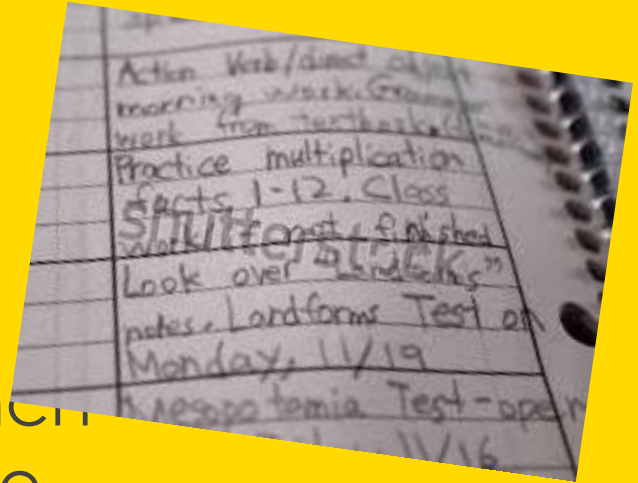 Action Verb/direct object
morning work. Grammar
work from textbook.
Practice multiplication
facts 1-12. Class
work not finished
shutterstock
Look over "Landforms"
notes. Landforms Test on
Monday, 11/19
Mesopotamia Test-open
11/16